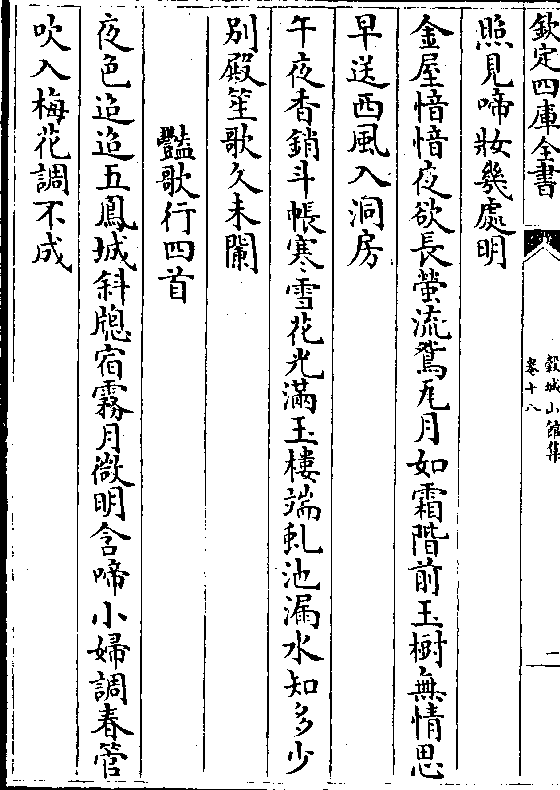 欽定四庫全書
穀城山館集
卷十八
二
照見啼妝幾處明
金屋愔愔夜欲長螢流鴛瓦月如霜階前玉樹無情思
早送西風入洞房
午夜香銷斗帳寒雪花光滿玉樓端虬池漏水知多少
別殿笙歌久未闌
豔歌行四首
夜色迢迢五鳳城斜牕宿霧月微明含啼小婦調春管
吹入梅花調不成